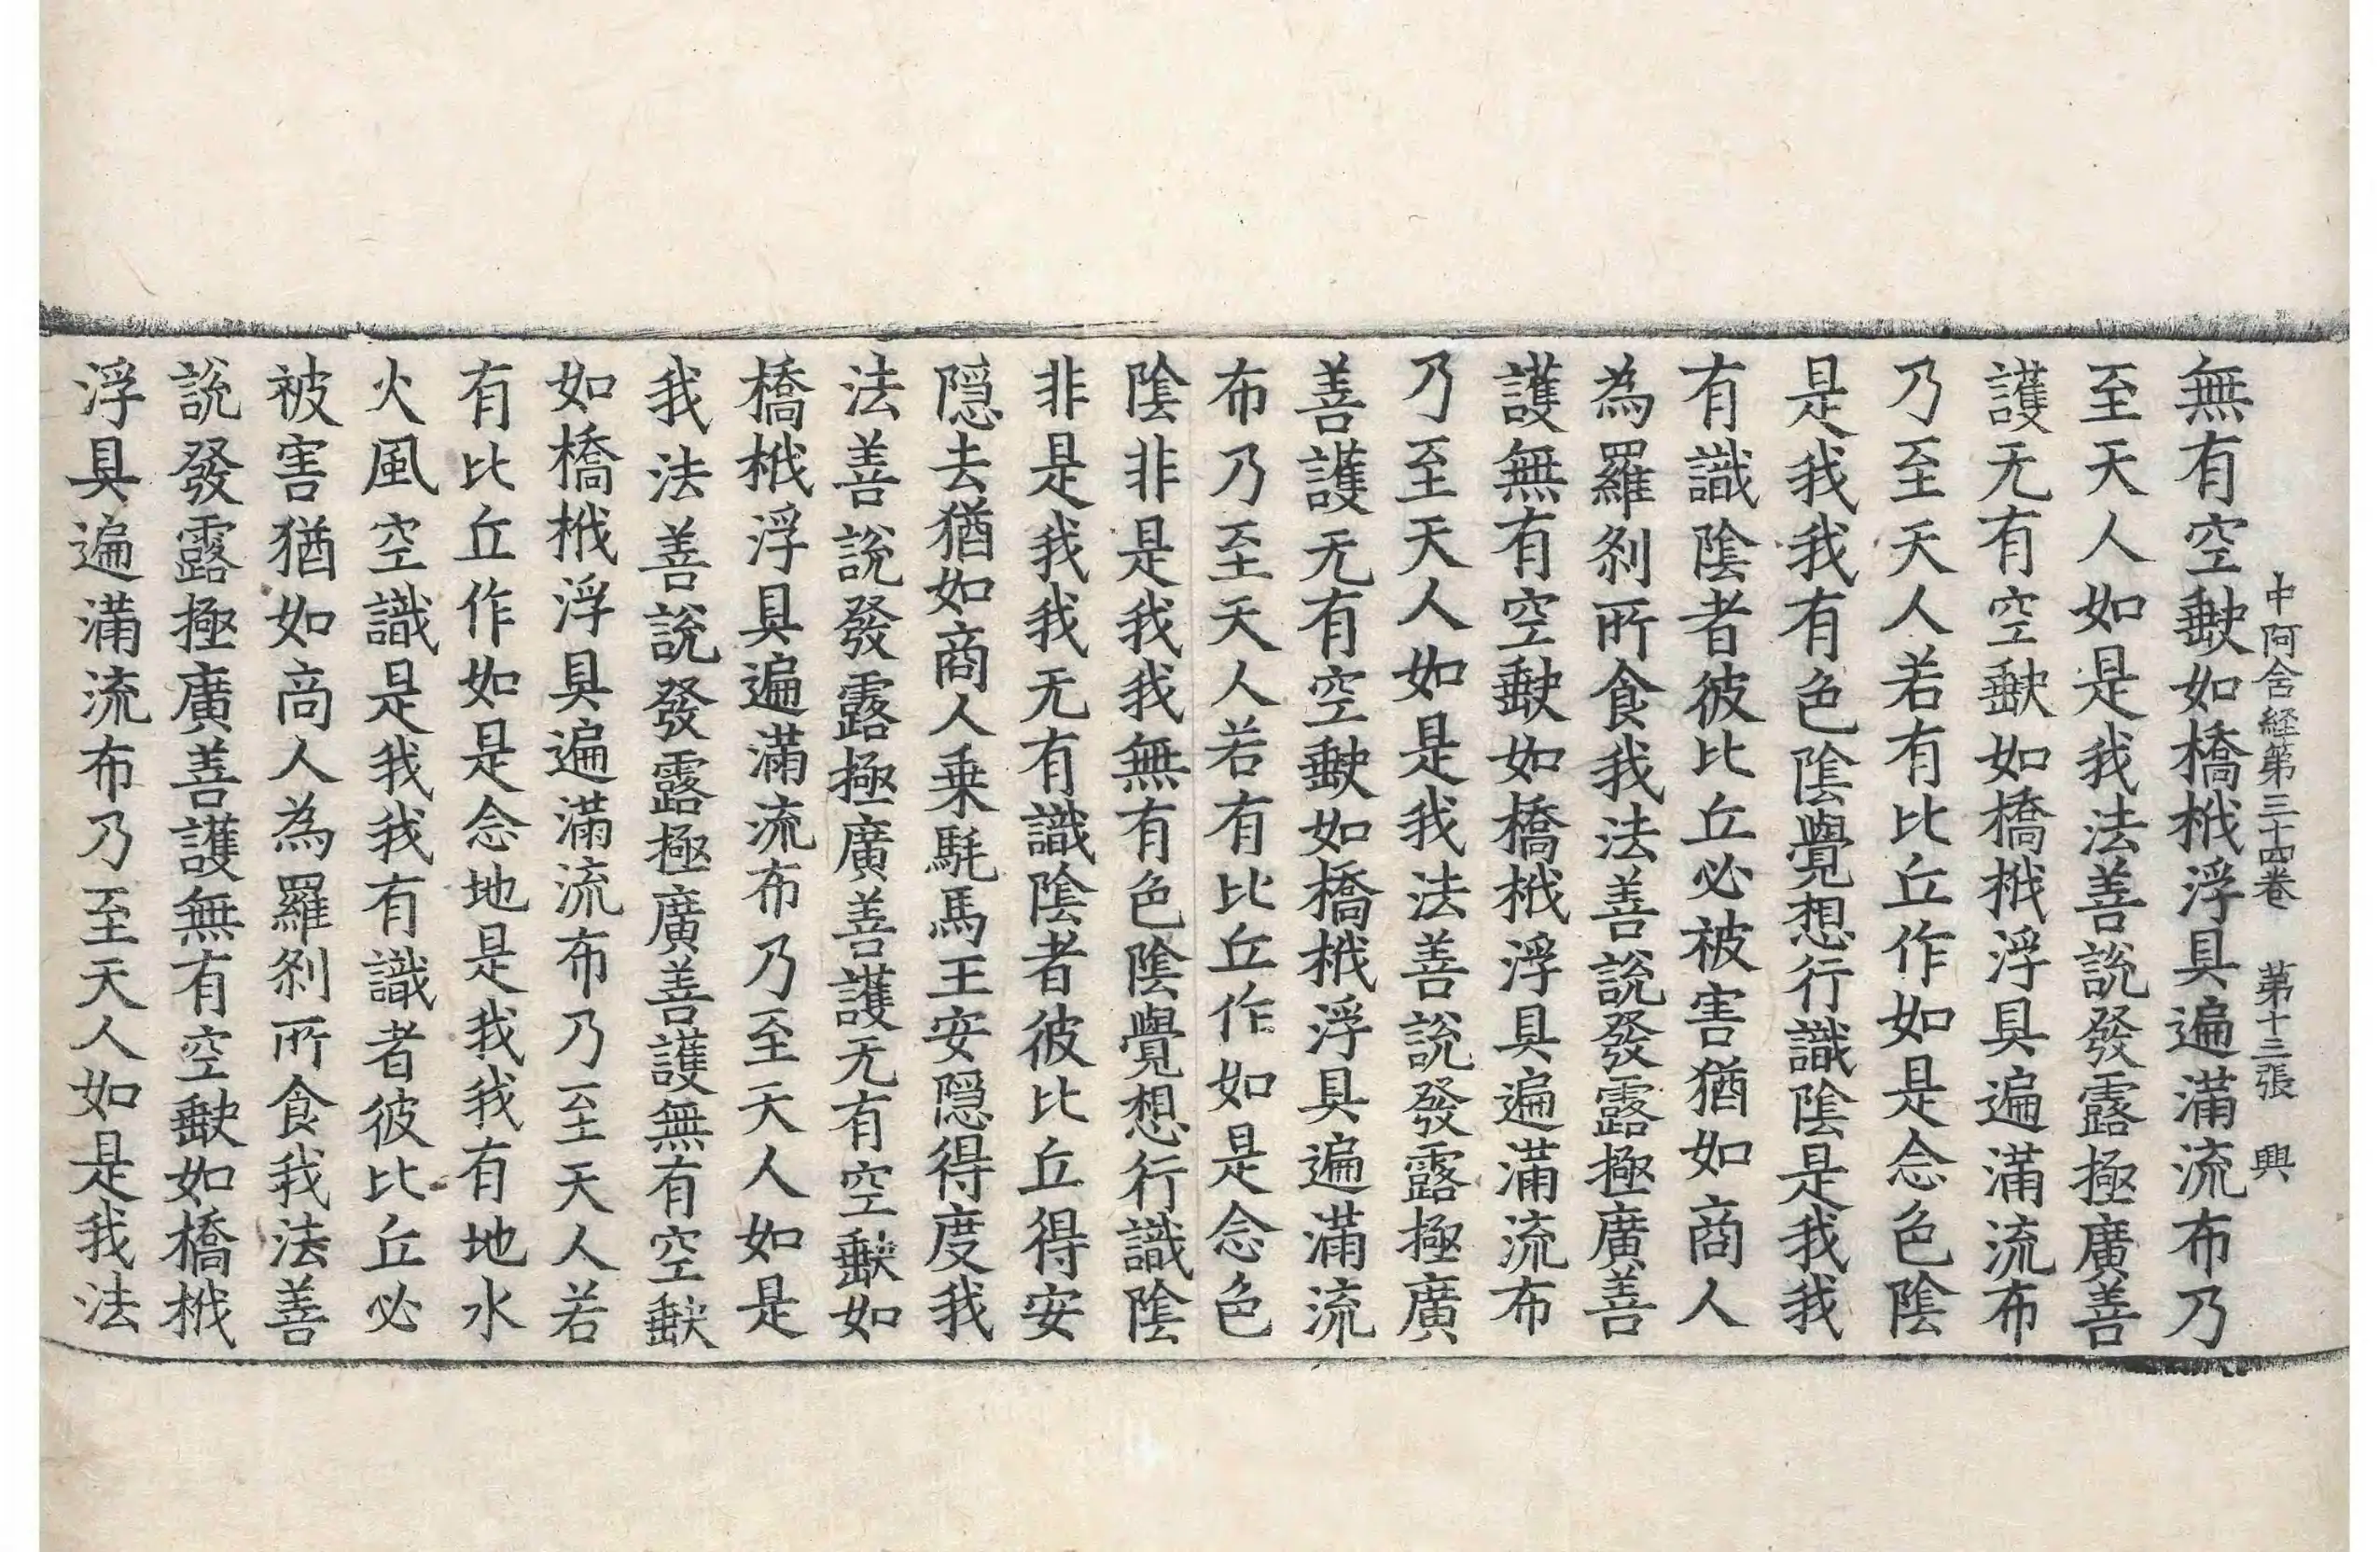 中阿含経第三十四卷 第十三張 興
無有空𡙇如橋栰浮具遍滿流布乃
至天人如是我法善說發露極廣善
護无有空𡙇如橋栰浮具遍滿流布
乃至天人若有比丘作如是念色陰
是我我有色陰覺想行識陰是我我
有識陰者彼比丘必被害猶如商人
為羅剎所食我法善說發露極廣善
護無有空𡙇如橋栰浮具遍滿流布
乃至天人如是我法善說發露極廣
善護无有空𡙇如橋栰浮具遍滿流
布乃至天人若有比丘作如是念色
陰非是我我無有色陰覺想行識陰
非是我我无有識陰者彼比丘得安
隠去猶如商人乗駐馬王安隠得度我
法善說發露極廣善護无有空𡙇如
橋栰浮具遍滿流布乃至天人如是
我法善說發露極廣善護無有空𡙇
如橋栰浮具遍滿流布乃至天人若
有比丘作如是念地是我我有地水
火風空識是我我有識者彼比丘必
被害猶如商人為羅剎所食我法善
說發露極廣善護無有空𡙇如橋栰
浮具遍滿流布乃至天人如是我法